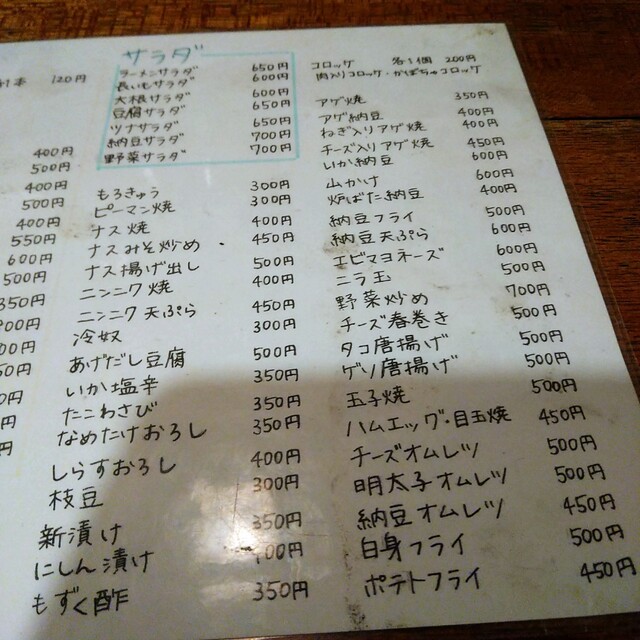 本 120円
400円
500円
400円
500円
400円
550円
600円
500円
350円
サラダ
ラーメンサラダ 650円
長いもサラダ 600円
大根サラダ 600円
豆腐サラダ 650円
ツナサラダ 650円
納豆サラダ 700円
野菜サラダ 700円
もろきゅう 300円
ピーマン焼 300円
ナス焼 400円
ナスみそ炒め 450円
ナス揚げ出し 500円
ニンニク焼 400円
ニンニク天ぷら 450円
冷奴 300円
あげだし豆腐 500円
いか塩辛 350円
たこわさび 350円
なめたけおろし 350円
しらすおろし 400円
枝豆 300円
新漬け 350円
にしん漬け 400円
もずく酢 350円
コロッケ 各1個 200円
肉入りコロッケ・かぼちゃコロッケ
アゲ焼 350円
アゲ納豆 400円
ねぎ入りアゲ焼 400円
チーズ入りアゲ焼 450円
いか納豆 600円
山かけ 600円
炉ばた納豆 400円
納豆フライ 500円
納豆天ぷら 600円
エビマヨネーズ 600円
ニラ玉 500円
野菜炒め 700円
チーズ春巻き 500円
タコ唐揚げ 500円
ゲソ唐揚げ 500円
玉子焼 500円
ハムエッグ・目玉焼 450円
チーズオムレツ 500円
明太子オムレツ 500円
納豆オムレツ 450円
白身フライ 500円
ポテトフライ 450円